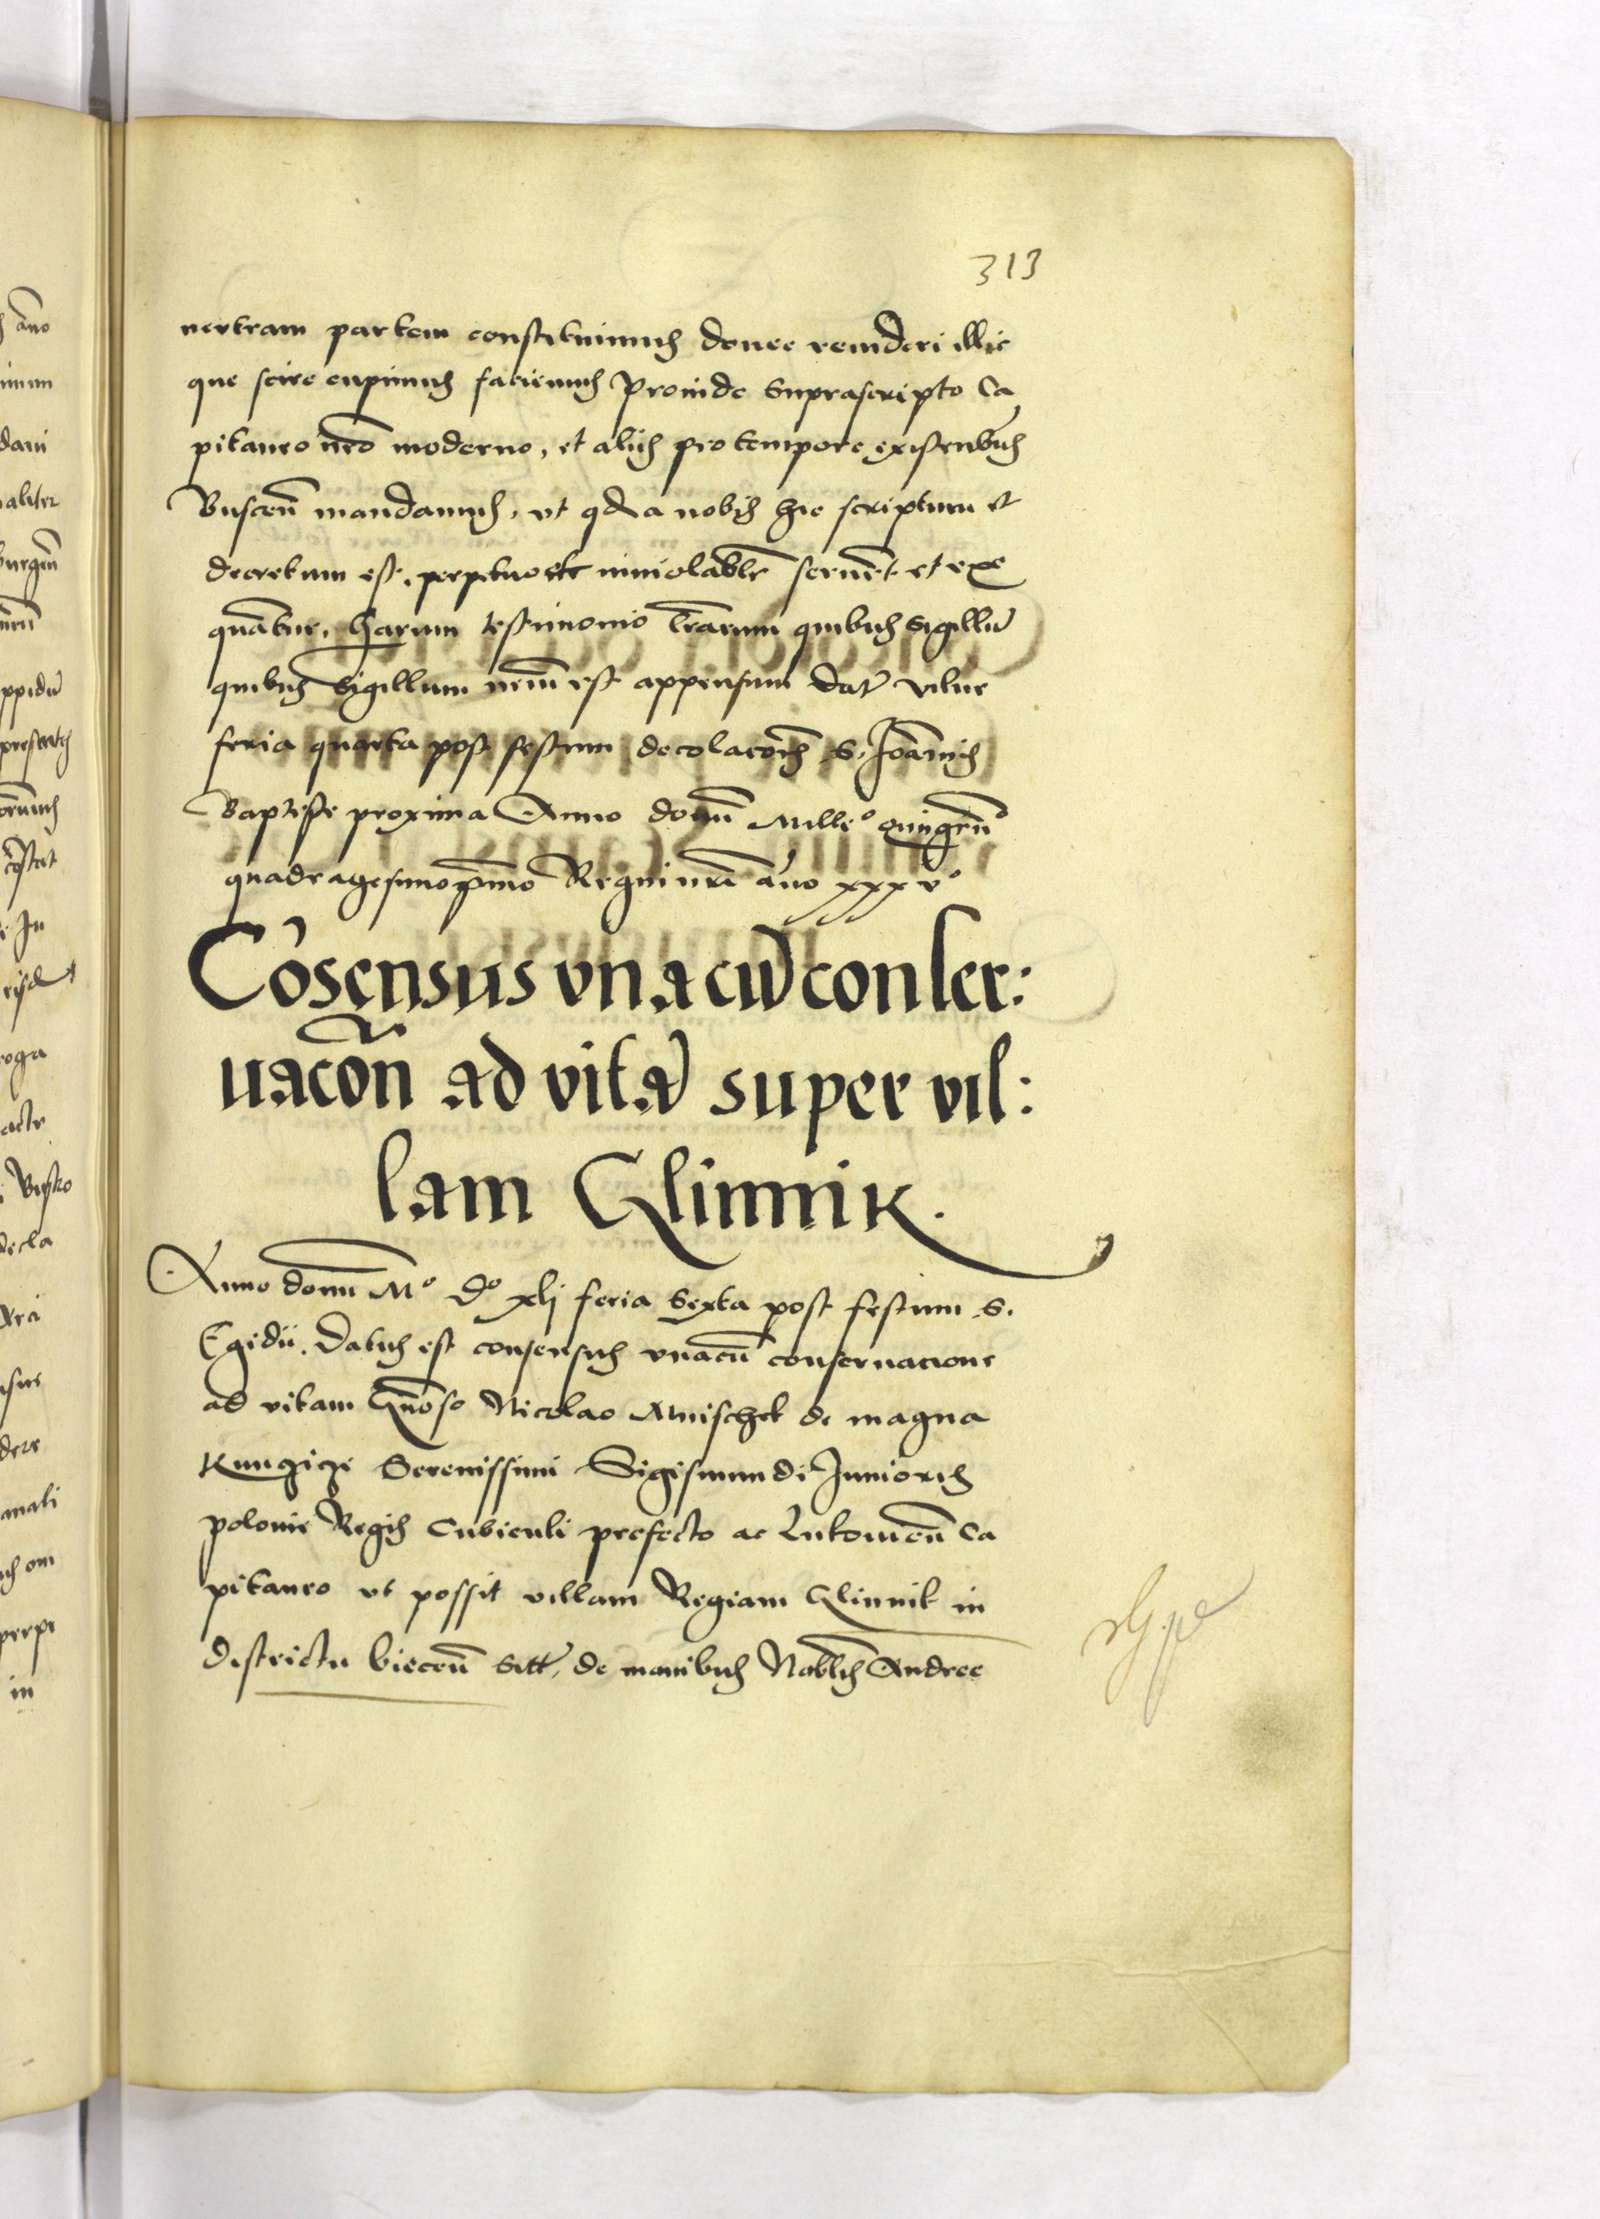 313
neutram partem constituimus donec reuideri illic
que scire cupimus faciemus Proinde Suprascripto Ca
pitaneo nrō moderno, et aliis pro tempore existentibus
Buscen̄ mandamus, vt qd a nobis hic scriptum et
decretum est, perpetuo etc inuiolablr seruēt et exe
quātur, Harum testimonio l̄rarum quibus Sigillū
quibus Sigillum nrm̄ est appensum Dat̄ Vilne
feria quarta post festum decolacōis S. Joānnis
Baptiste proxima Anno domī Mille° quingēn̄
quadragesimop̄mo Regni nrī āno xxxv°
Cōsensus vnacū conser:
uacōn ad vitā super vil:
lam Glinnik.
Anno domī M° D° xlj feria Sexta post festum S.
Egidii. Datus est consensus vnacū conseruacione
ad vitam Gnōso Nicolao Mnischek de magna
Kunczicze Serenissimi Sigismundi Junioris
polonie Regis Cubiculi prefecto ac Lukouien̄ Ca
pitaneo vt possit villam Regiam Glinnik in
districtu biecen̄ Sitt̄, de manibus Nobl̄is Andree